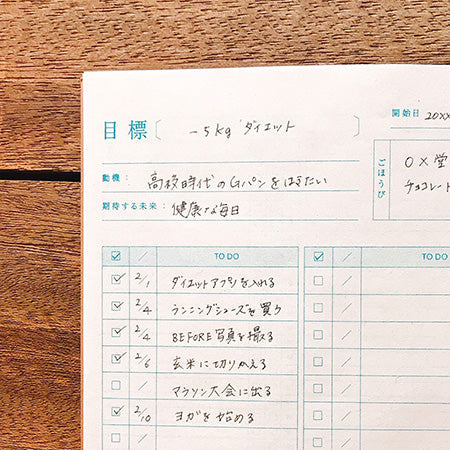 目標 〔 −5kg ダイエット 〕
開始日 20XX
動機： 高校時代のGパンをはきたい
期待する未来： 健康な毎日
ごほうび
〇×堂
チョコレート
☑ / TO DO
☑ 2/1 ダイエットアプリを入れる
☑ 2/4 ランニングシューズを買う
☑ 2/4 BEFORE写真を撮る
☑ 2/6 玄米に切りかえる
☐ / マラソン大会に出る
☑ 2/10 ヨガを始める
☐ /
☑ / TO DO
☐ /
☐ /
☐ /
☐ /
☐ /
☐ /
☐ /